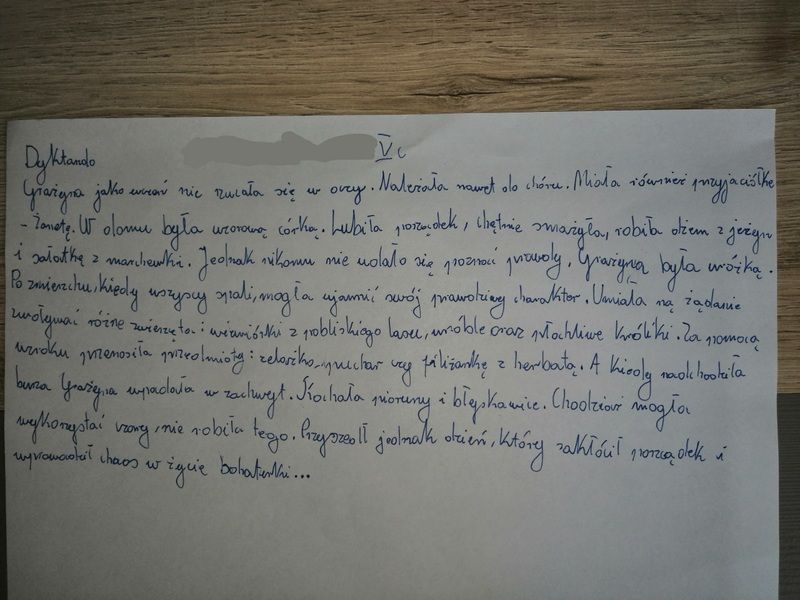 Dyktando V c
Grażyna jako uczeń nie rzucała się w oczy. Należała nawet do chóru. Miała również przyjaciółkę
- Żanetę. W domu była wzorową córką. Lubiła porządek, chętnie smażyła, robiła dżem z jeżyn
i sałatkę z marchewki. Jednak nikomu nie udało się poznać prawdy. Grażyną była wróżką.
Po zmierzchu, kiedy wszyscy spali, mogła ujawnić swój prawdziwy charakter. Umiała ną żądanie
zwoływać różne zwierzęta: wiewiórki z pobliskiego lasu, wróble oraz płochliwe króliki. Za pomocą
wzroku przenosiła przedmioty: żelazko, puchar czy filiżankę z herbatą. A kiedy nadchodziła
burza Grażyna wpadała w zachwyt. Kochała pioruny i błyskawice. Chodziaż mogła
wykorzystać czary, nie robiła tego. Przyszedł jednak dzień, który zakłócił porządek i
wprowadził chaos w życie bohaterki...